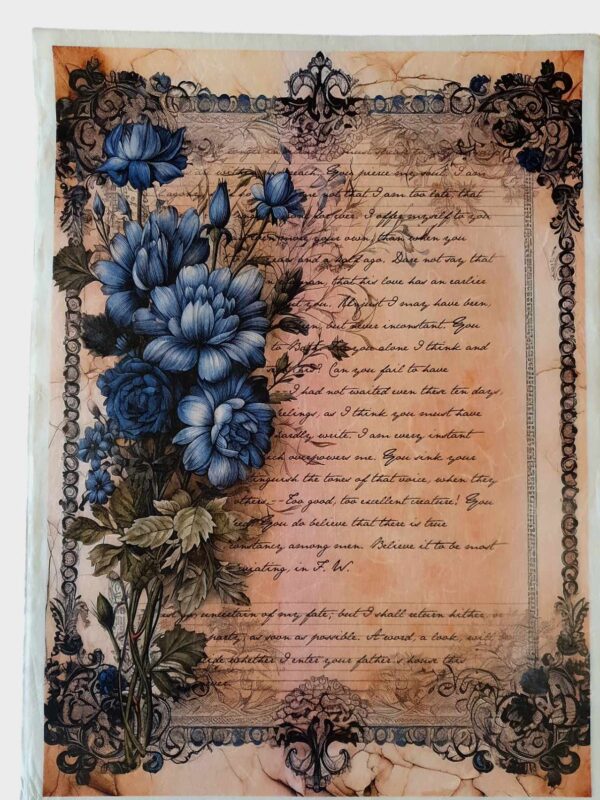 reach. You pierce my soul. I am
me not that I am too late, that
gone for ever. I offer myself to you
more your own, than when you
years and a half ago. Dare not say that
man, that his love has an earlier
you. Unjust I may have been,
been, but never inconstant. You
to Bath. you alone I think and
this? Can you fail to have
I had not waited even these ten days,
feelings, as I think you must have
hardly write. I am every instant
which overpowers me. You sink your
distinguish the tones of that voice, when they
others.--Too good, too excellent creature! You
You do believe that there is true
constancy among men. Believe it to be most
in F. W.
uncertain of my fate; but I shall return hither, or
party, as soon as possible. A word, a look, will
whether I enter your father's house this